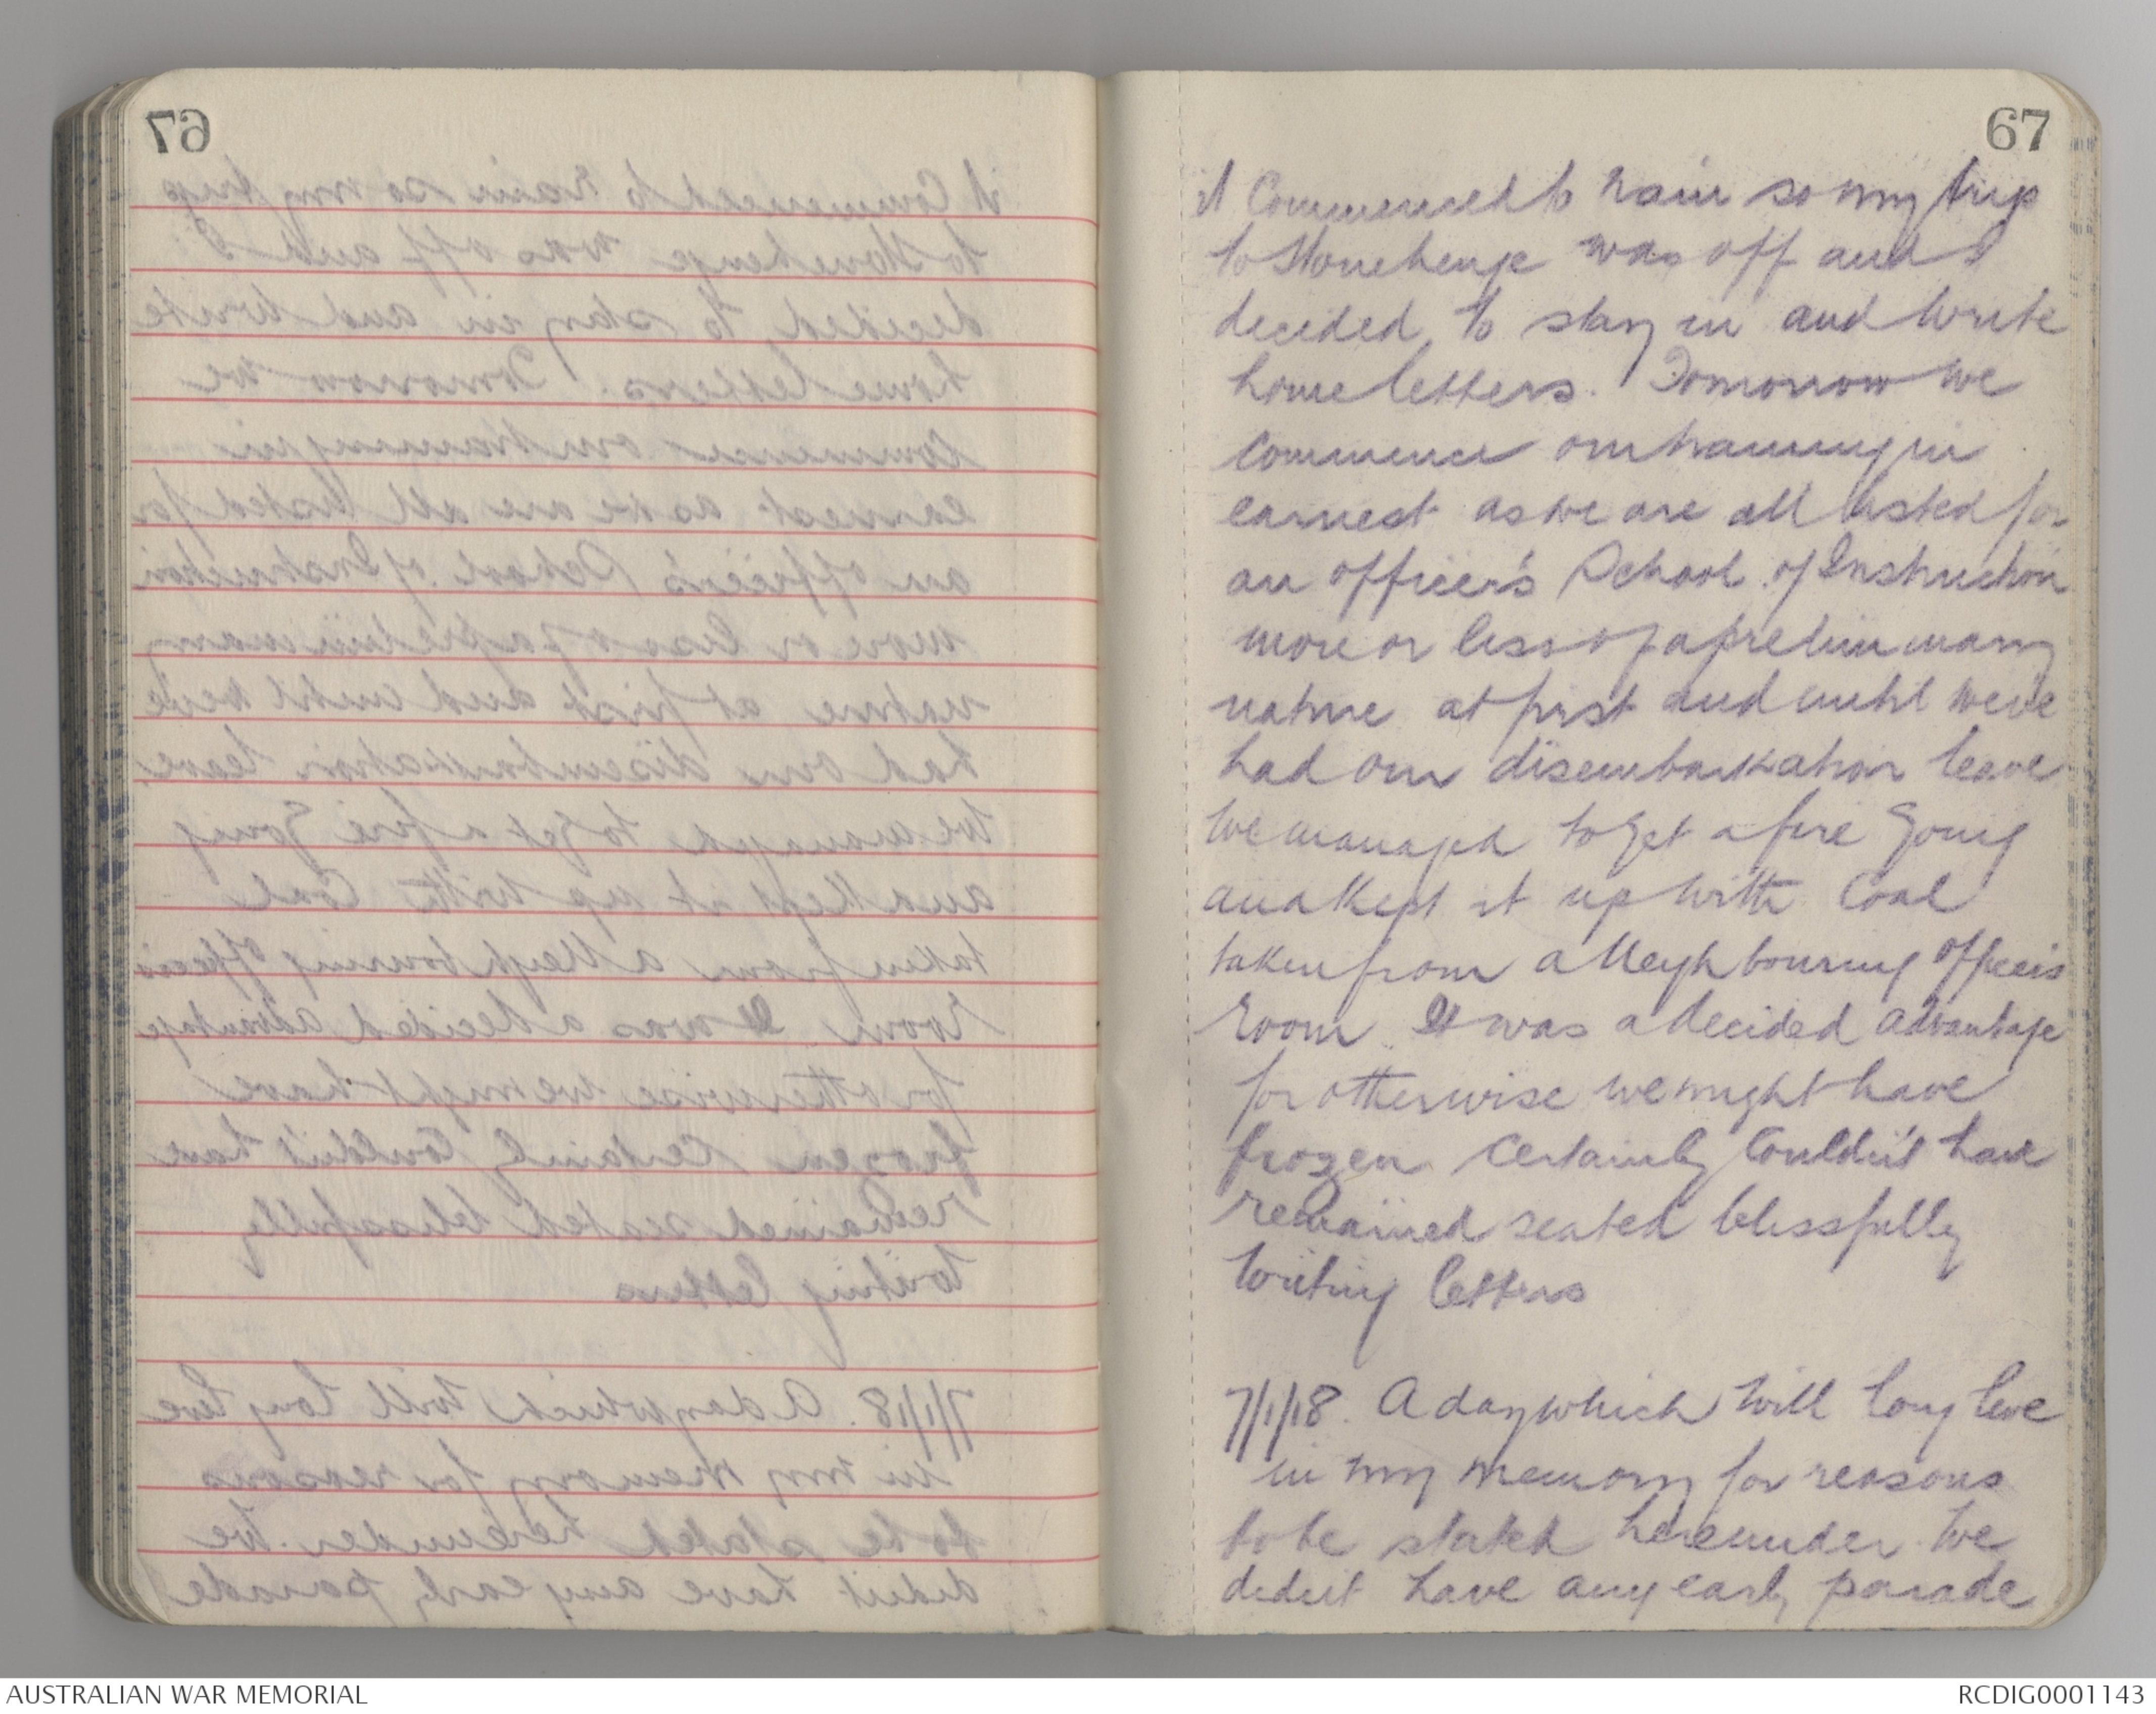 67
it Commenced to rain so my trip
to Stonehenge was off and I
decided to stay in and write
home letters. Tomorrow we
commence our training in
earnest as we are all listed for
an officer's School of Instruction
more or less of a preliminary
nature at first and until we've
had our disembarkation leave
We managed to get a fire going
and kept it up with Coal
taken from a Neighbouring Officers
room. It was a decided advantage
for otherwise we might have
frozen Certainly Couldn't have
remained seated blissfully
writing letters
7/1/18. A day which will long live
in my memory for reasons
to be stated hereunder. We
didn't have any early parade
AUSTRALIAN WAR MEMORIAL
RCDIG0001143